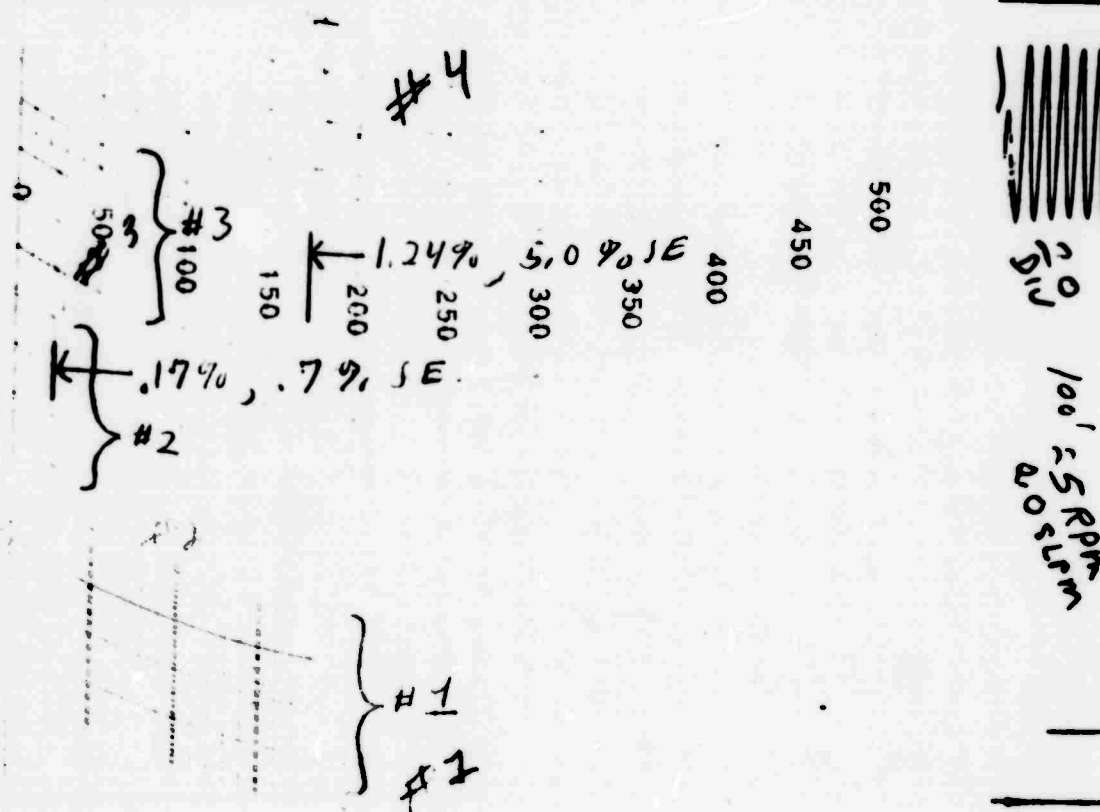 #4
500
450
400
350
300
250
200
150
100
50
0
#3
3
1.24%, 5.0% SE
.17%, .7% SE
#2
#1
#1
DIV
100'
5 RPM
2.0 SLPM